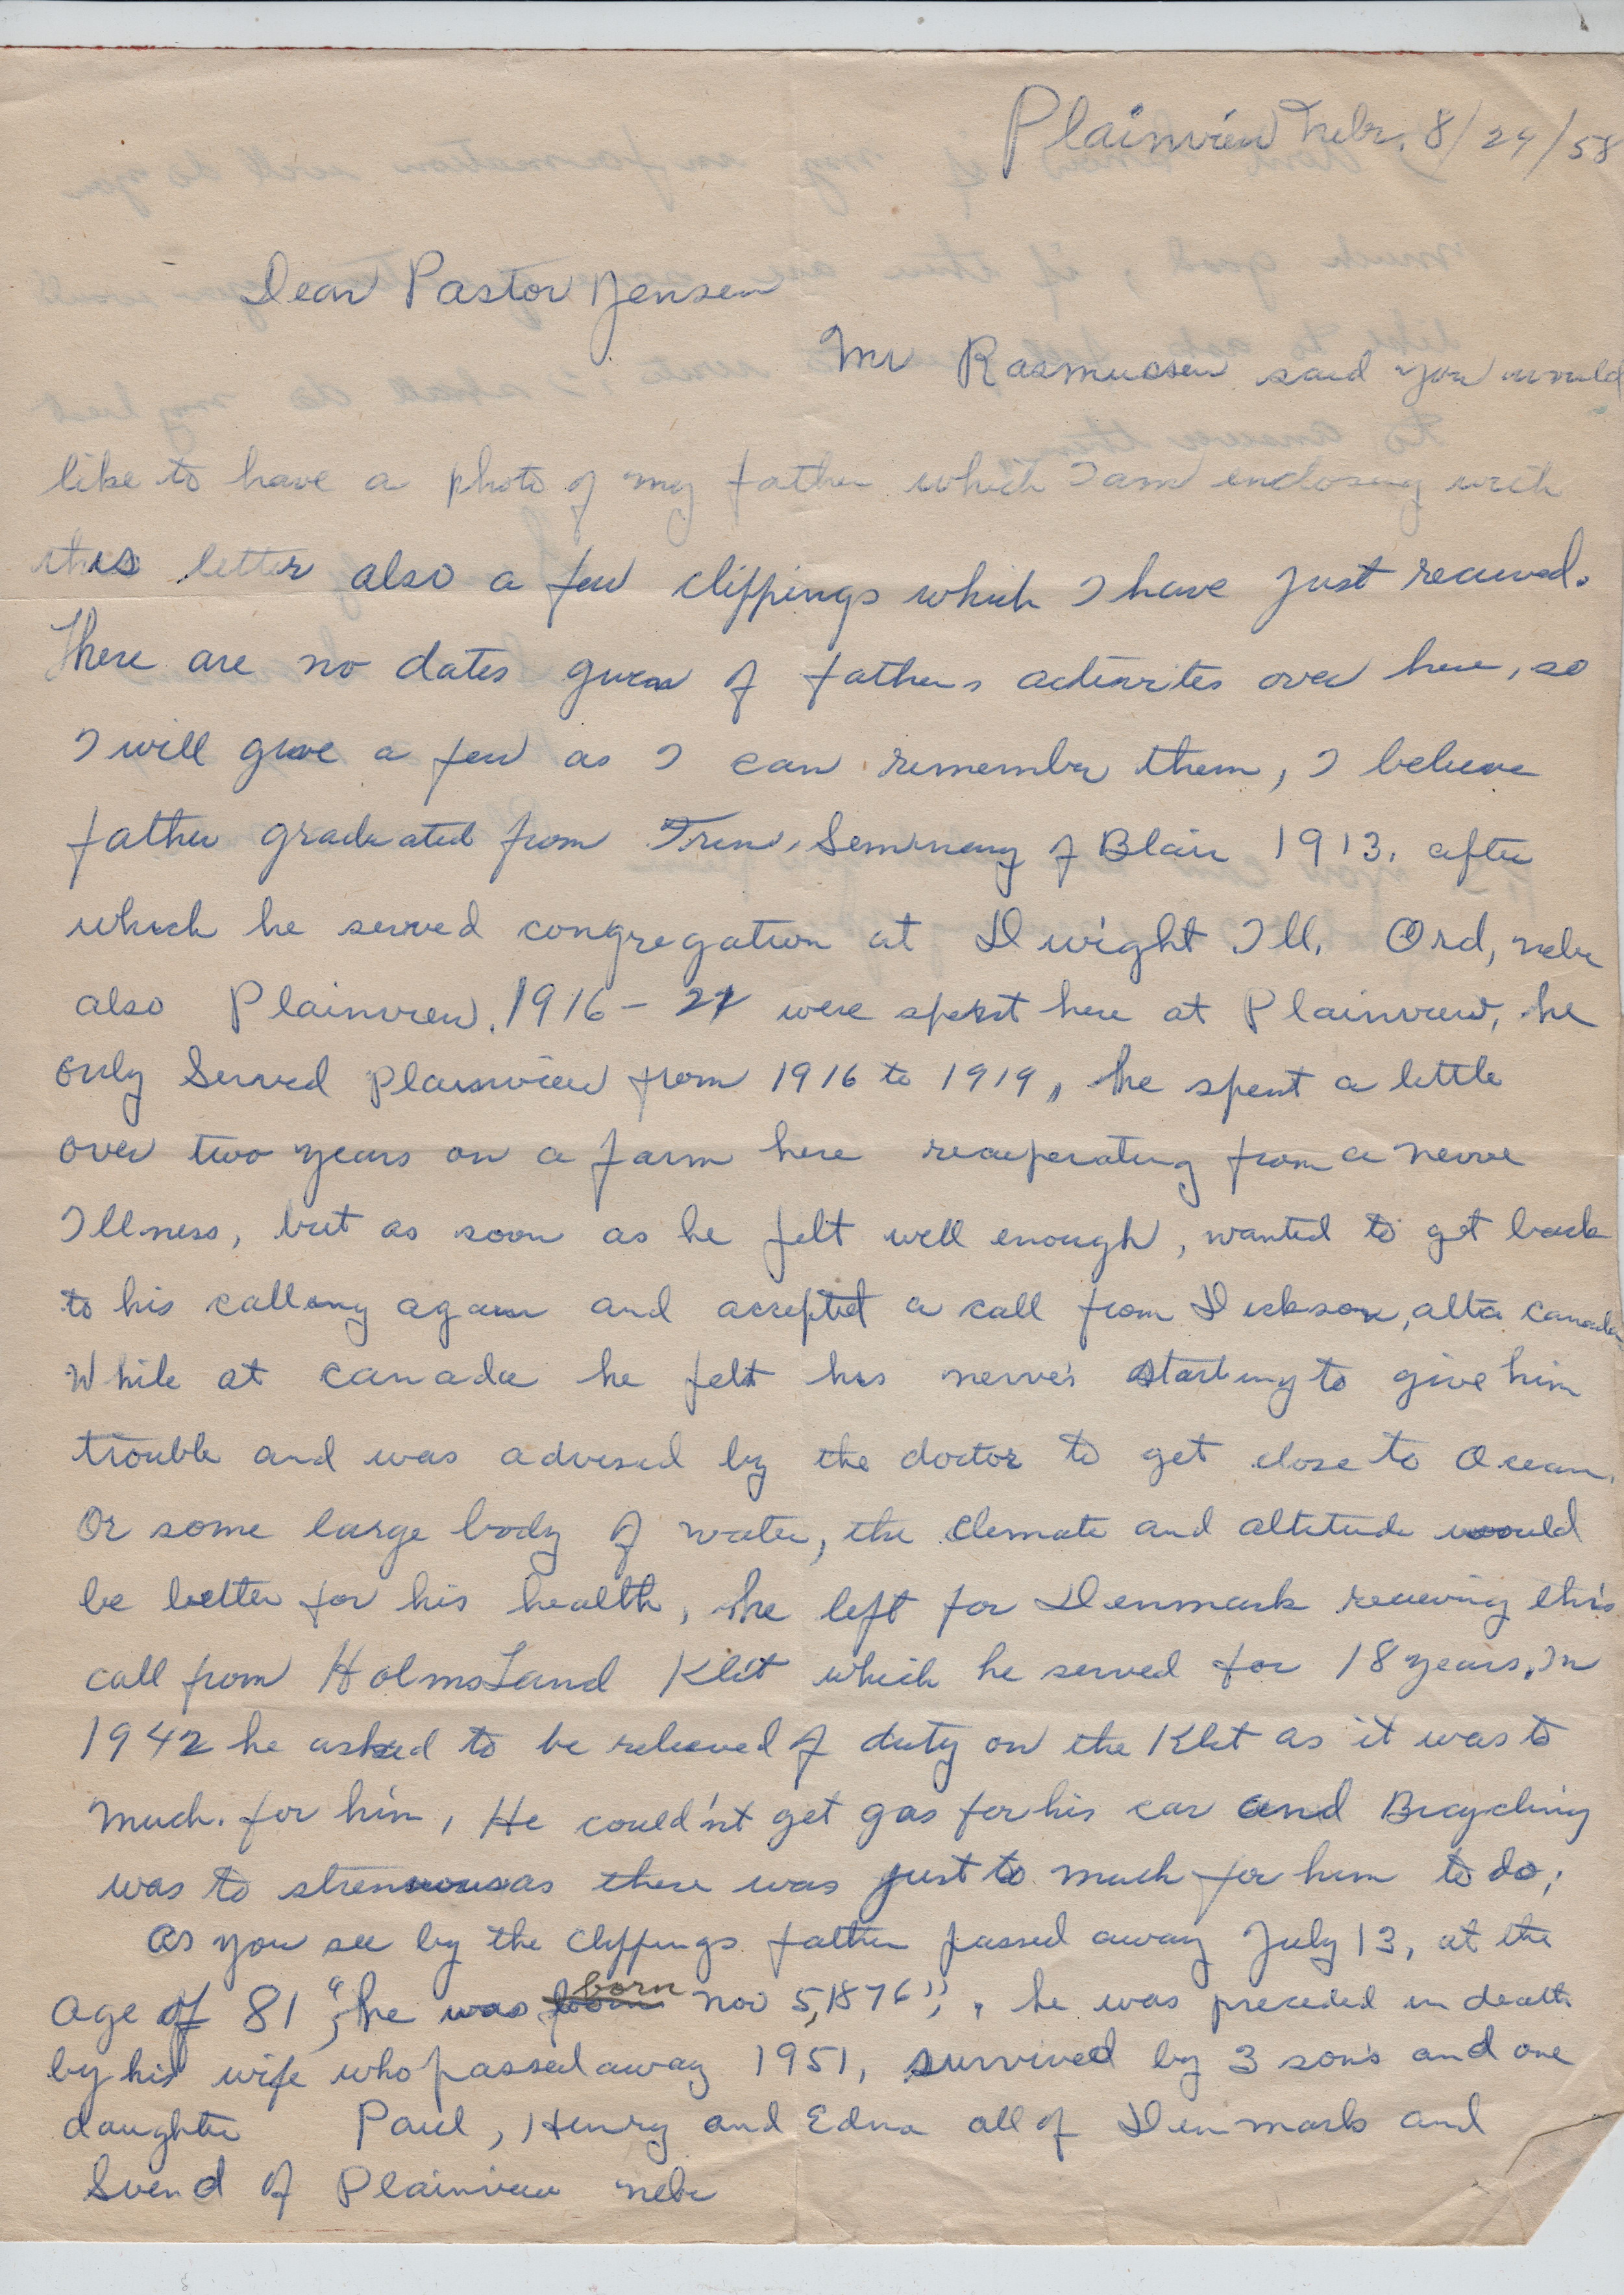 Plainview Nebr. 8/24/58
Dear Pastor Jensen
Mr Rasmussen said you would
like to have a photo of my father which I am enclosing with
this letter also a few clippings which I have just received.
There are no dates given of fathers activites over here, so
I will give a few as I can remember them, I believe
father graduated from Trin. Seminary of Blair 1913. after
which he served congregation at Dwight Ill. Ord, nebr
also Plainview. 1916 - 21 were spent here at Plainview, he
only Served Plainview from 1916 to 1919, he spent a little
over two years on a farm here recuperating from a nerve
Illness, but as soon as he felt well enough, wanted to get back
to his calling again and accepted a call from Dickson, alta canada
While at canada he felt his nerves starting to give him
trouble and was advised by the doctor to get close to Ocean.
Or some large body of water, the climate and altitude would
be better for his health, he left for Denmark receiving this
call from HolmsLand Klit which he served for 18 years. In
1942 he asked to be relieved of duty on the Klit as it was to
much. for him, He could'nt get gas for his car and Bicycling
was to strenuous as there was just to much for him to do;
as you see by the clippings father passed away July 13, at the
age of 81 "he was born nov 5, 1876", he was preceded in death
by his wife who passed away 1951, survived by 3 sons and one
daughter Paul, Henry and Edna all of Denmark and
Svend of Plainview nebr